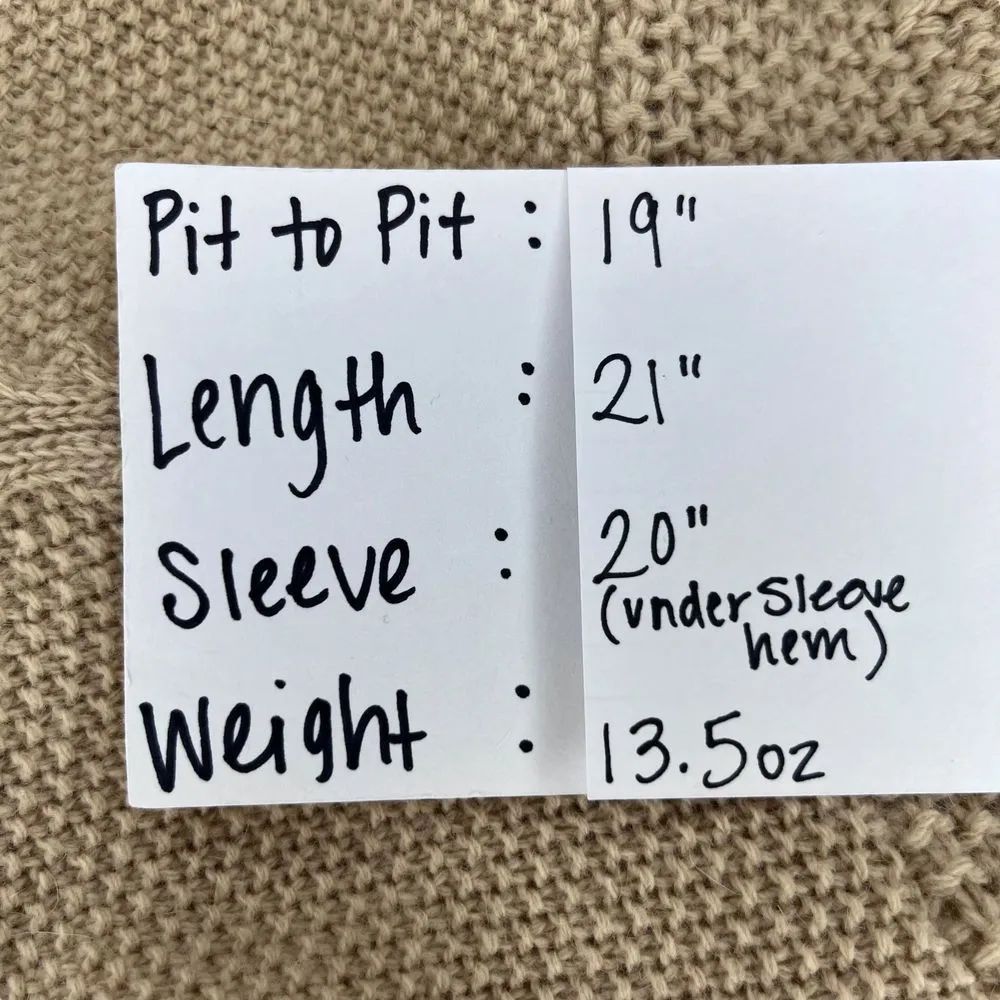 Pit to Pit : 19"
Length : 21"
Sleeve : 20"
(under sleeve
hem)
Weight : 13.5oz